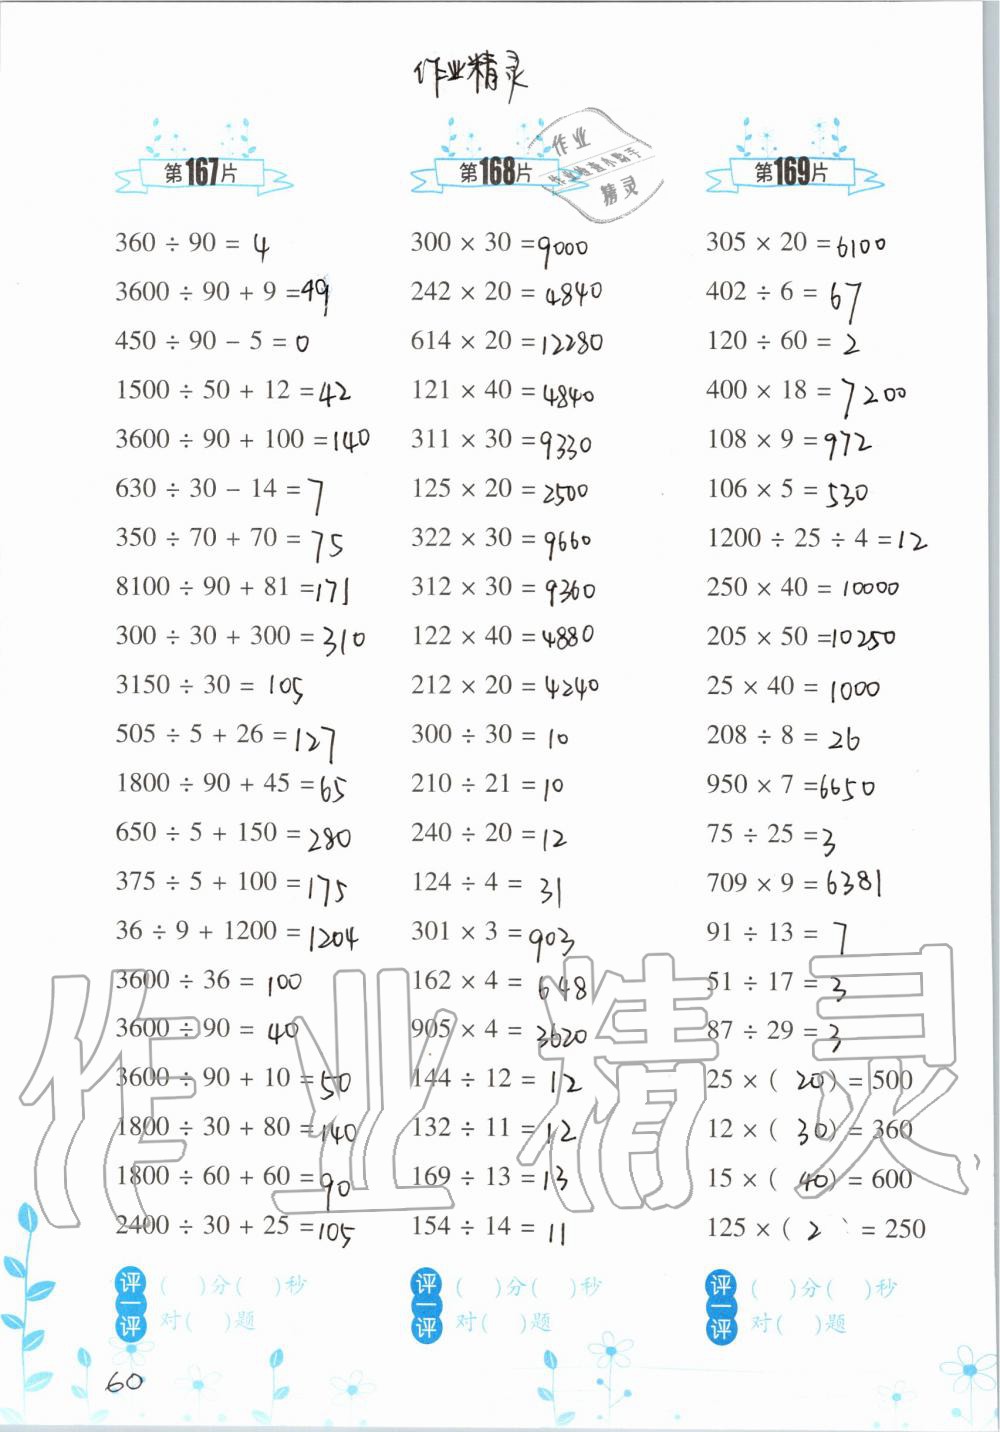 作业精灵
作业
作业检查小助手
精灵
第167片
360 ÷ 90 = 4
3600 ÷ 90 + 9 = 49
450 ÷ 90 − 5 = 0
1500 ÷ 50 + 12 = 42
3600 ÷ 90 + 100 = 140
630 ÷ 30 − 14 = 7
350 ÷ 70 + 70 = 75
8100 ÷ 90 + 81 = 171
300 ÷ 30 + 300 = 310
3150 ÷ 30 = 105
505 ÷ 5 + 26 = 127
1800 ÷ 90 + 45 = 65
650 ÷ 5 + 150 = 280
375 ÷ 5 + 100 = 175
36 ÷ 9 + 1200 = 1204
3600 ÷ 36 = 100
3600 ÷ 90 = 40
3600 ÷ 90 + 10 = 50
1800 ÷ 30 + 80 = 140
1800 ÷ 60 + 60 = 90
2400 ÷ 30 + 25 = 105
评一评
( )分( )秒
对( )题
第168片
300 × 30 = 9000
242 × 20 = 4840
614 × 20 = 12280
121 × 40 = 4840
311 × 30 = 9330
125 × 20 = 2500
322 × 30 = 9660
312 × 30 = 9360
122 × 40 = 4880
212 × 20 = 4240
300 ÷ 30 = 10
210 ÷ 21 = 10
240 ÷ 20 = 12
124 ÷ 4 = 31
301 × 3 = 903
162 × 4 = 648
905 × 4 = 3620
144 ÷ 12 = 12
132 ÷ 11 = 12
169 ÷ 13 = 13
154 ÷ 14 = 11
评一评
( )分( )秒
对( )题
第169片
305 × 20 = 6100
402 ÷ 6 = 67
120 ÷ 60 = 2
400 × 18 = 7200
108 × 9 = 972
106 × 5 = 530
1200 ÷ 25 ÷ 4 = 12
250 × 40 = 10000
205 × 50 = 10250
25 × 40 = 1000
208 ÷ 8 = 26
950 × 7 = 6650
75 ÷ 25 = 3
709 × 9 = 6381
91 ÷ 13 = 7
51 ÷ 17 = 3
87 ÷ 29 = 3
25 × ( 20 ) = 500
12 × ( 30 ) = 360
15 × ( 40 ) = 600
125 × ( 2 ) = 250
评一评
( )分( )秒
对( )题
作业精灵
60